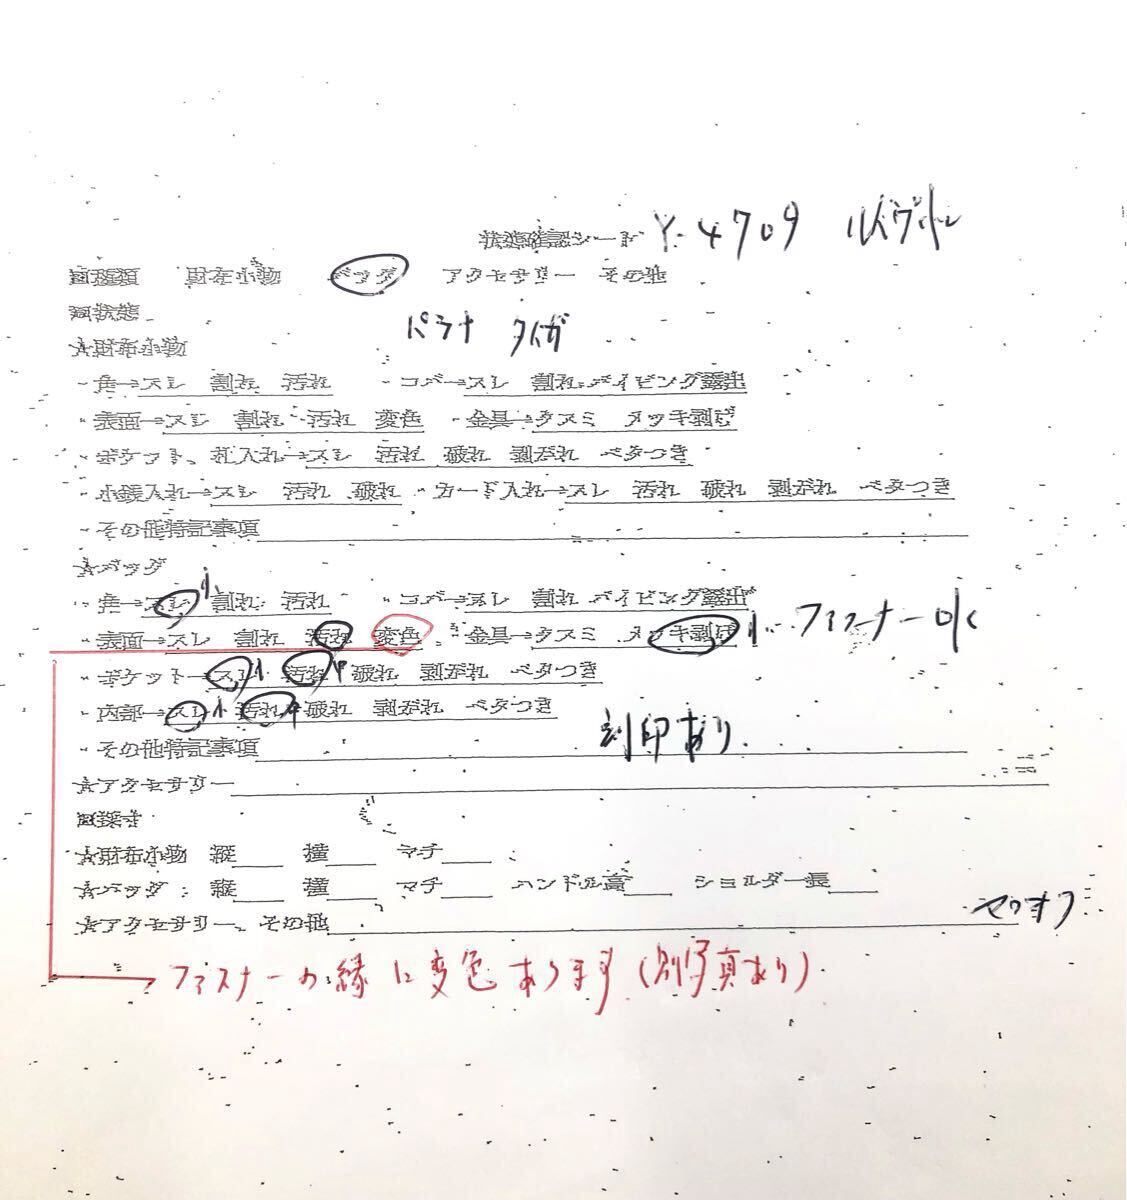 状態確認シート Y-4709 ルイヴィトン
■種類 財布小物 バッグ アクセサリー その他
■状態
パラナ タイガ
★財布小物
・角→スレ 割れ 汚れ ・コバ→スレ 割れ パイピング露出
・表面→スレ 割れ 汚れ 変色 ・金具→クスミ メッキ剥げ
・ポケット、札入れ→スレ 汚れ 破れ 剥がれ ベタつき
・小銭入れ→スレ 汚れ 破れ ・カード入れ→スレ 汚れ 破れ 剥がれ ベタつき
・その他特記事項
★バッグ
・角→スレ 小 割れ 汚れ ・コバ→スレ 割れ パイピング露出
・表面→スレ 割れ 汚れ 変色 ・金具→クスミ メッキ剥げ 小 ファスナー
・ポケット→スレ 小 汚れ 中 破れ 剥がれ ベタつき
・内部→スレ 小 汚れ 中 破れ 剥がれ ベタつき
刻印あり
・その他特記事項
★アクセサリー
■採寸
★財布小物 縦 横 マチ
★バッグ 縦 横 マチ ハンドル高 ショルダー長
★アクセサリー、その他
ファスナーの縁に変色あります(別写真あり)